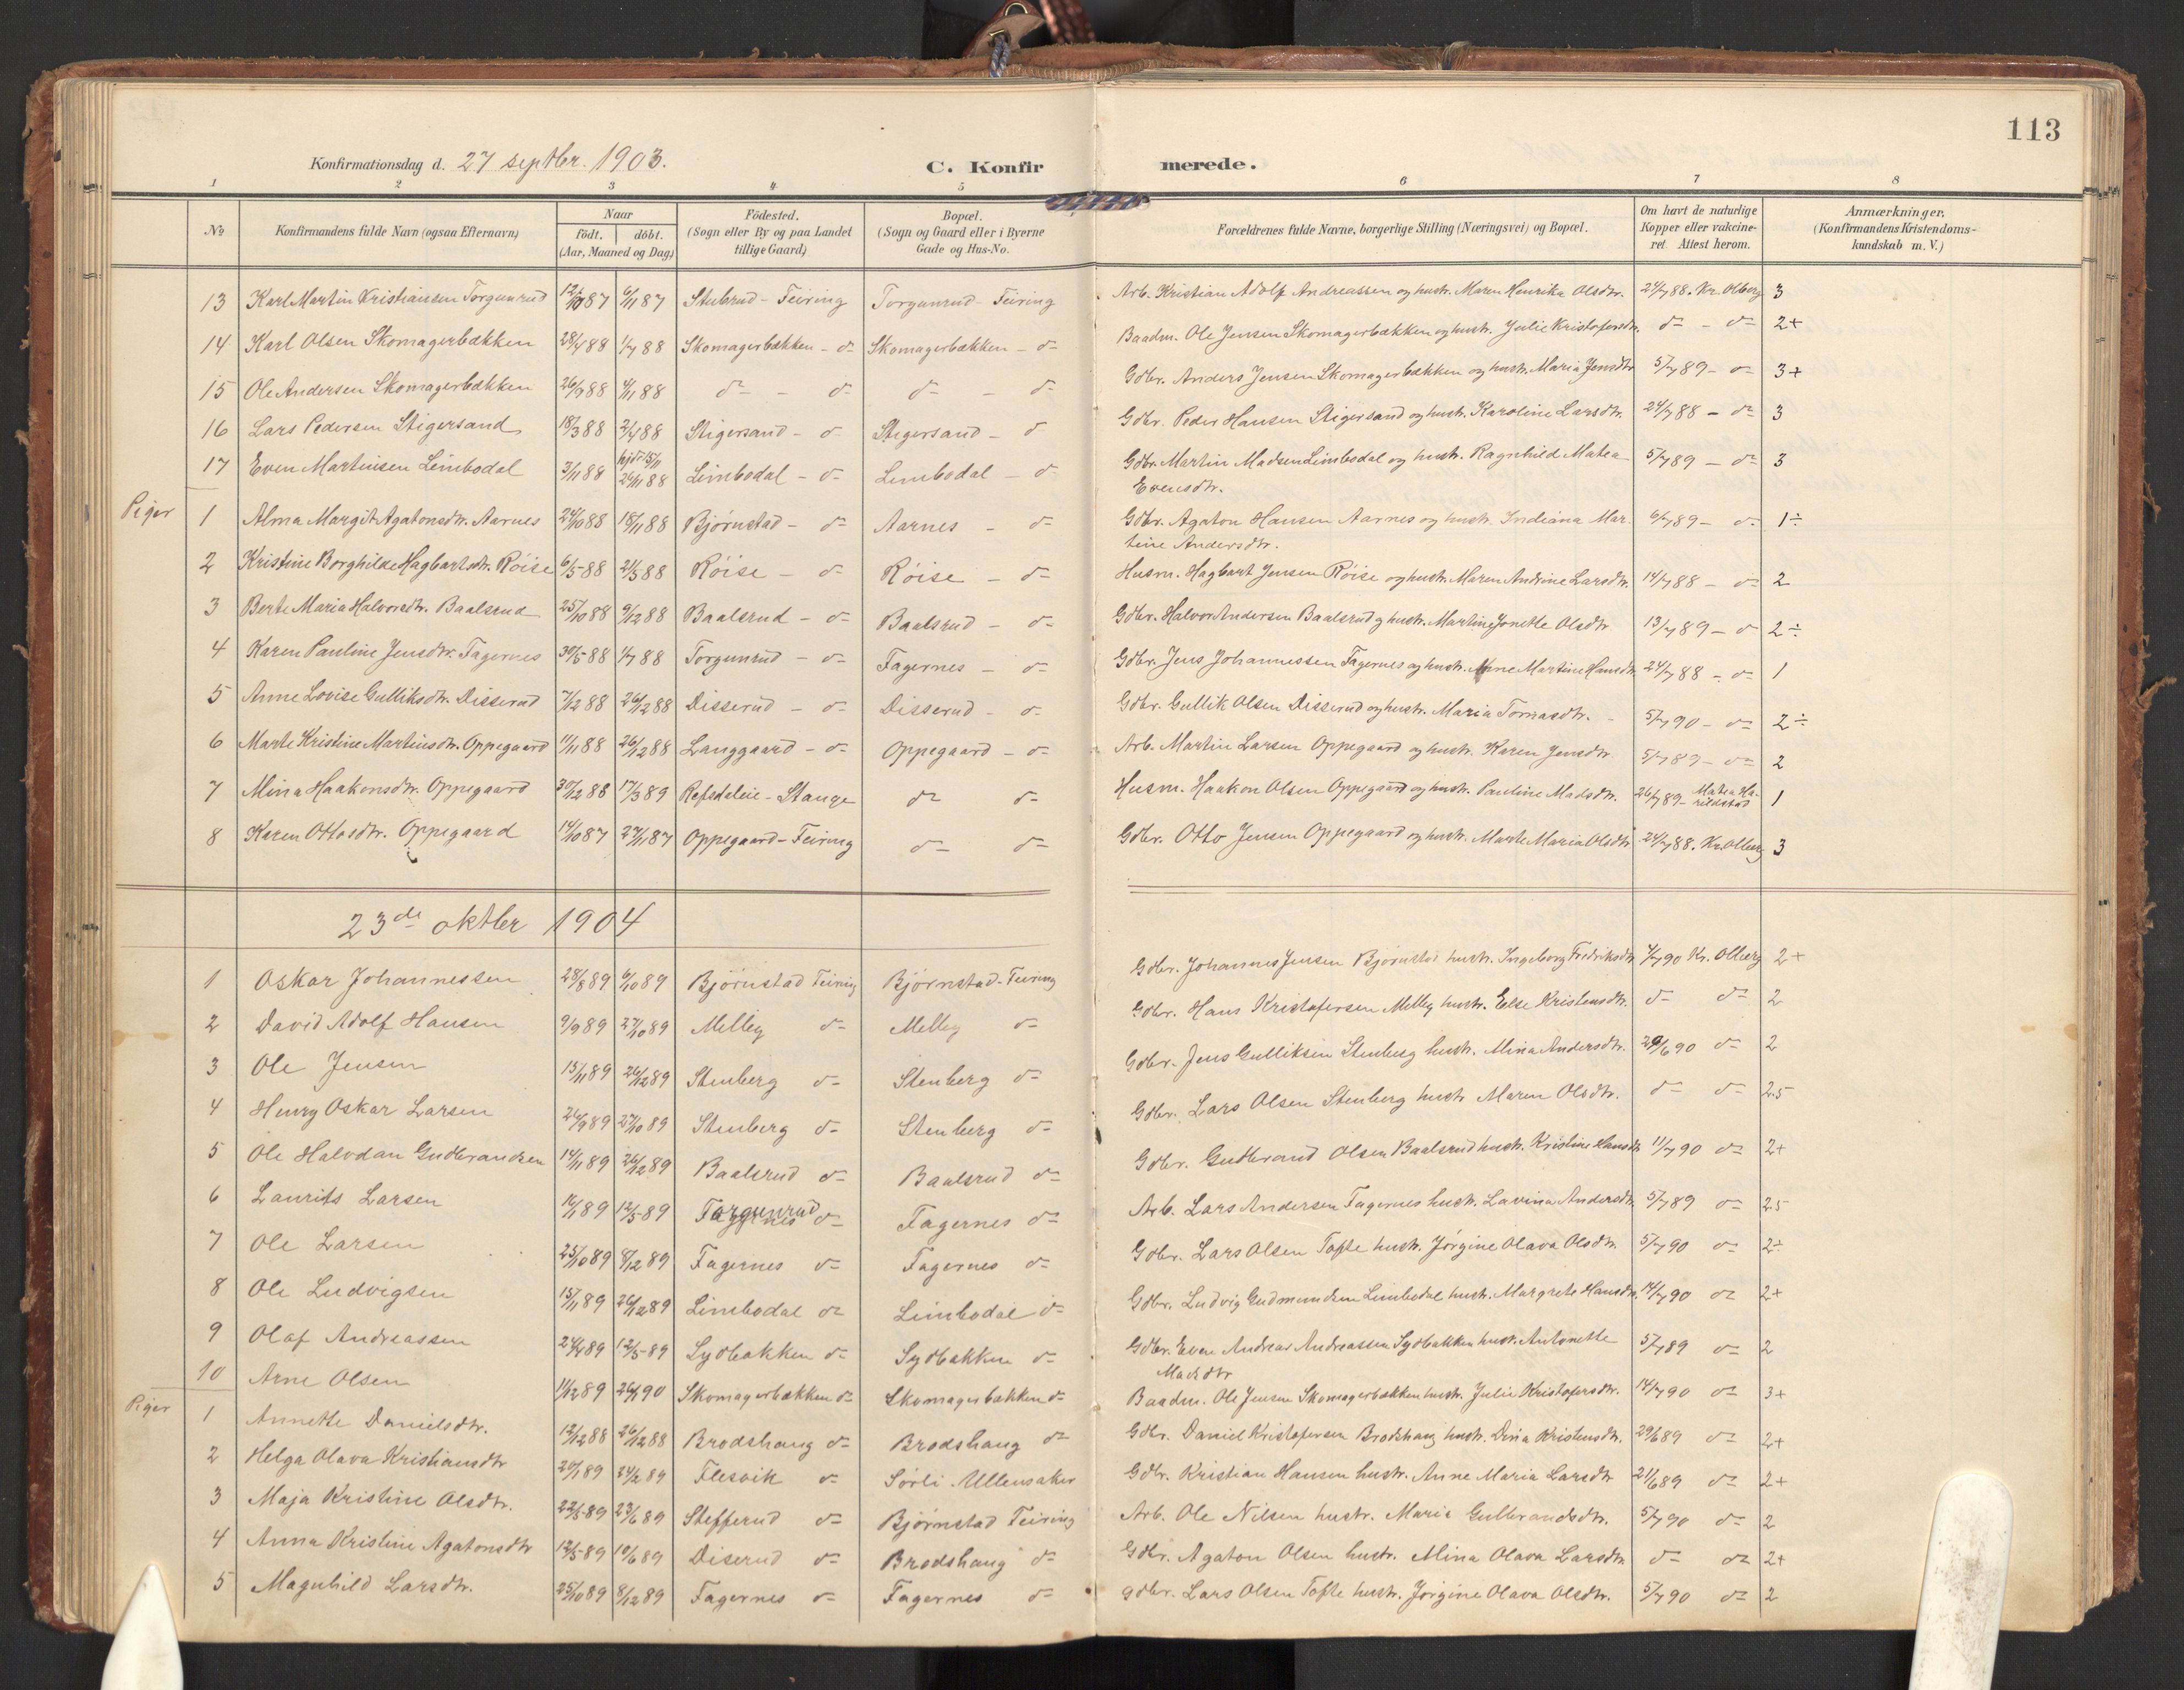 113
Konfirmationsdag d. 27 septbr. 1903.
C. Konfir merede.
1 2 3 4 5 6 7 8
No
Konfirmandens fulde Navn (ogsaa Efternavn)
Naar
födt. döbt.
(Aar, Maaned og Dag)
Födested.
(Sogn eller By og paa Landet
tillige Gaard)
Bopæl.
(Sogn og Gaard eller i Byerne
Gade og Hus-No.
Forældrenes fulde Navne, borgerlige Stilling (Næringsvei) og Bopæl.
Om havt de naturlige
Kopper eller vakcine-
ret Attest herom.
Anmærkninger.
(Konfirmandens Kristendoms-
kundskab m. V.)
13 Karl Martin Kristiansen Torgunrud 12/10 87 6/11 87 Stubrud - Feiring Torgunrud - Feiring Arb. Kristian Adolf Andreassen og hustr. Maren Henrika Olsdtr. 24/7 88. Kr. Olberg 3
14 Karl Olsen Skomagerbækken 28/4 88 1/7 88 Skomagerbækken - do Skomagerbækken - do Baadm. Ole Jensen Skomagerbækken og hustr. Julie Kristofersdtr. do - do 2+
15 Ole Andersen Skomagerbækken 26/9 88 4/11 88 do - do do - do Gdbr. Anders Jensen Skomagerbækken og hustr. Maria Jensdtr 5/7 89 - do 3+
16 Lars Pedersen Stigersand 18/3 88 2/4 88 Stigersand - do Stigersand - do Gdbr. Peder Hansen Stigersand og hustr. Karoline Larsdtr. 24/7 88 - do 3
17 Even Martinsen Limbodal 3/11 88 hjdr 15/11 26/11 88 Limbodal - do Limbodal - do Gdbr. Martin Madsen Limbodal og hustr. Ragnhild Matea 5/7 89 - do 3
Evensdtr.
Piger 1 Alma Margit Agatonsdtr. Aarnes 24/10 88 18/11 88 Bjørnstad - do Aarnes - do Gdbr. Agaton Hansen Aarnes og hustr. Indiana Mar- 6/7 89 - do 1÷
tine Andersdtr.
2 Kristine Borghilde Hagbartsdtr. Röise 6/5 88 21/5 88 Röise - do Röise - do Husm. Hagbart Jensen Röise og hustr. Maren Andrine Larsdtr. 14/7 88 - do 2
3 Berte Maria Halvorsdtr. Baalsrud 25/10 88 9/12 88 Baalsrud - do Baalsrud - do Gdbr. Halvor Andersen Baalsrud og hustr. Martine Jonette Olsdtr. 13/7 89 - do 2÷
4 Karen Pauline Jensdtr. Fagernes 30/5 88 1/7 88 Torgunrud - do Fagernes - do Gdbr. Jens Johannessen Fagernes og hustr. Anne Martine Hansdtr. 24/7 88 - do 1
5 Anne Lovise Gulliksdtr. Disserud 7/12 88 26/12 88 Disserud - do Disserud - do Gdbr. Gullik Olsen Disserud og hustr. Maria Tomasdtr. - 5/7 90 - do 2÷
6 Marte Kristine Martinsdtr. Oppegaard 11/11 88 26/12 88 Langgaard - do Oppegaard - do Arb. Martin Larsen Oppegaard og hustr. Karen Jensdtr. 5/7 89 - do 2
7 Mina Haakonsdtr. Oppegaard 30/12 88 17/3 89 Refsdaleie - Stange do do Husm. Haakon Olsen Oppegaard og hustr. Pauline Madsdtr. 26/7 89 - Matea Ha- 1
rildstad
8 Karen Ottosdtr. Oppegaard 14/10 87 27/11 87 Oppegaard - Feiring do do Gdbr. Otto Jensen Oppegaard og hustr. Marte Maria Olsdtr. 24/7 88. Kr. Olberg 3
23de oktbr 1904
1 Oskar Johannessen 28/8 89 6/10 89 Björnstad Feiring Björnstad - Feiring Gdbr. Johannes Jensen Bjørnstad hustr. Ingeborg Fredriksdtr 4/7 90 Kr. Olberg 2+
2 David Adolf Hansen 9/9 89 27/10 89 Melby do Melby do Gdbr. Hans Kristofersen Melby hustr. Else Kristensdtr. do do 2
3 Ole Jensen 15/11 89 26/12 89 Stenberg do Stenberg do Gdbr. Jens Gulliksen Stenberg hustr. Mina Andersdtr. 29/6 90 do 2
4 Henry Oskar Larsen 26/9 89 27/10 89 Stenberg do Stenberg do Gdbr. Lars Olsen Stenberg hustr Maren Olsdtr. do do 2.5
5 Ole Halvdan Gudbrandsen 14/11 89 26/12 89 Baalsrud do Baalsrud do Gdbr. Gudbrand Olsen Baalsrud hustr. Kristine Hansdtr 11/7 90 do 2+
6 Laurits Larsen 16/1 89 12/5 89 Torgunrud do Fagernes do Arb. Lars Andersen Fagernes hustr. Lavina Andersdtr 5/7 89 do 2.5
7 Ole Larsen 25/10 89 8/12 89 Fagernes do Fagernes do Gdbr. Lars Olsen Tofte hustr. Jörgine Olava Olsdtr. 5/7 90 do 2÷
8 Ole Ludvigsen 15/11 89 26/12 89 Limbodal do Limbodal do Gdbr. Ludvig Gudmundsen Limbodal hustr. Margrete Hansdtr. 14/7 90 do 2+
9 Olaf Andreassen 24/4 89 12/5 89 Sydbakken do Sydbakken do Gdbr. Even Andreas Andreassen Sydbakken hustr. Antonette 5/7 89 do 2
Madsdtr
10 Arne Olsen 11/12 89 26/1 90 Skomagerbækken do Skomagerbækken do Baadm. Ole Jensen Skomagerbækken hustr. Julie Kristofersdtr. 14/7 90 do 3+
Piger 1 Annette Danielsdtr. 12/12 88 26/12 88 Brodshaug do Brodshaug do Gdbr. Daniel Kristofersen Brodshaug hustr. Dina Kristensdtr. 29/6 89 do 2+
2 Helga Olava Kristiansdtr 20/1 89 24/2 89 Flesvik do Sörli - Ullensaker Gdbr. Kristian Hansen hustr. Anne Maria Larsdtr 21/6 89 do 2+
3 Maja Kristine Olsdtr. 22/5 89 23/6 89 Stefferud do Bjørnstad Feiring Arb. Ole Nilsen hustr. Maria Gulbrandsdtr. 5/7 90 do 2
4 Anna Kristine Agatonsdtr 12/5 89 10/6 89 Diserud do Brodshaug do Gdbr. Agaton Olsen hustr. Mina Olava Larsdtr do do 2+
5 Magnhild Larsdtr. 25/10 89 8/12 89 Fagernes do Fagernes do Gdbr. Lars Olsen Tofte hustr. Jörgine Olava Olsdtr. 5/7 90 do 2